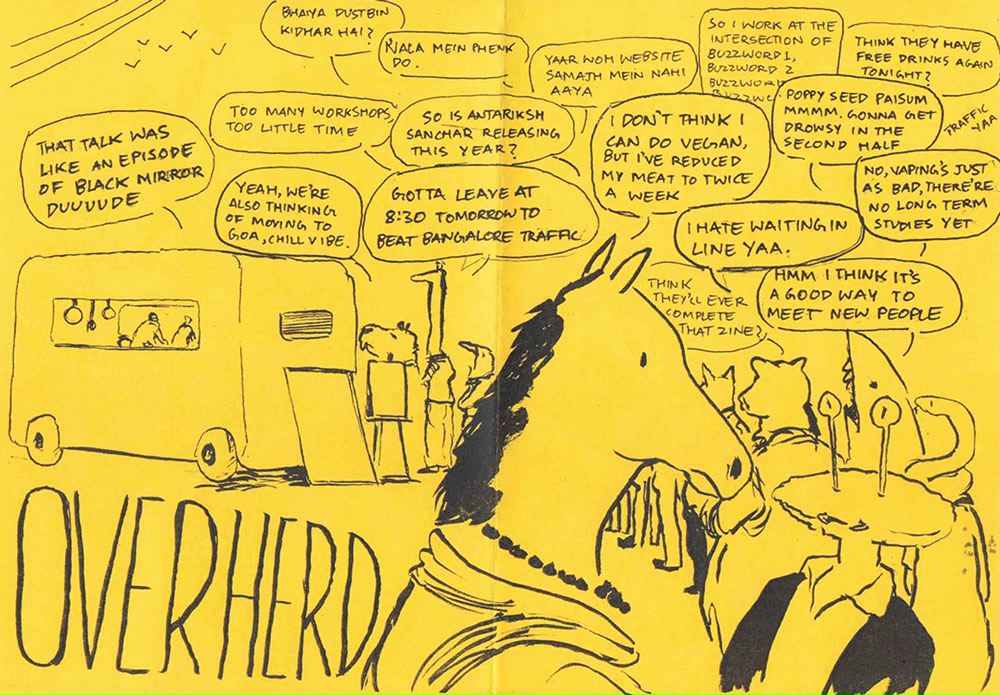 BHAIYA DUSTBIN
KIDHAR HAI?
NALA MEIN PHENK
DO.
YAAR WOH WEBSITE
SAMAJH MEIN NAHI
AAYA
SO I WORK AT THE
INTERSECTION OF
BUZZWORD 1,
BUZZWORD 2
BUZZWORD
BUZZWO
THINK THEY HAVE
FREE DRINKS AGAIN
TONIGHT?
TOO MANY WORKSHOPS,
TOO LITTLE TIME
SO IS ANTARIKSH
SANCHAR RELEASING
THIS YEAR?
I DON'T THINK I
CAN DO VEGAN,
BUT I'VE REDUCED
MY MEAT TO TWICE
A WEEK
POPPY SEED PAISUM
MMMM. GONNA GET
DROWSY IN THE
SECOND HALF
TRAFFIC
YAA
THAT TALK WAS
LIKE AN EPISODE
OF BLACK MIRROR
DUUUUDE
YEAH, WE'RE
ALSO THINKING
OF MOVING TO
GOA, CHILL VIBE.
GOTTA LEAVE AT
8:30 TOMORROW TO
BEAT BANGALORE TRAFFIC
NO, VAPING'S JUST
AS BAD, THERE'RE
NO LONG TERM
STUDIES YET
I HATE WAITING IN
LINE YAA.
THINK
THEY'LL EVER
COMPLETE
THAT ZINE?
HMM I THINK IT'S
A GOOD WAY TO
MEET NEW PEOPLE
OVERHERD